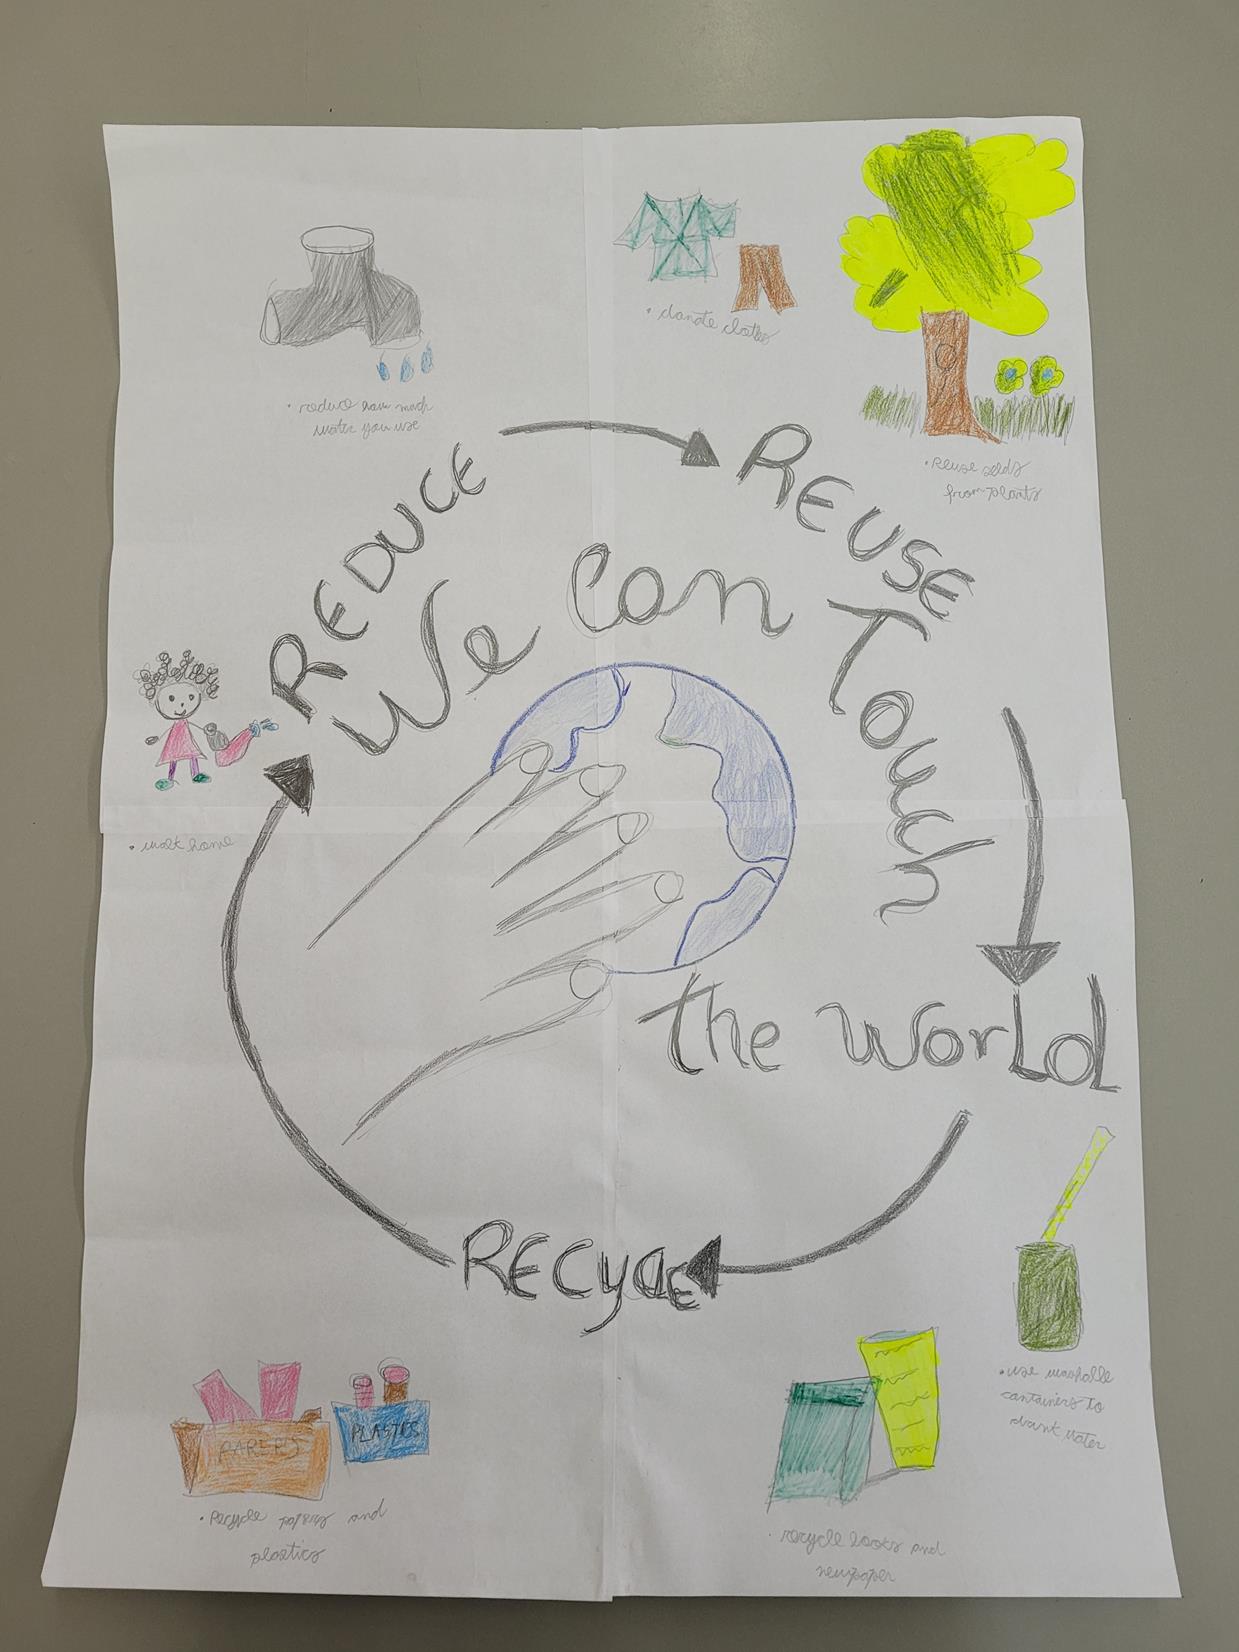 • donate clothes
• reduce how much
water you use
• reuse seeds
from plants
REDUCE
REUSE
We Can Touch
the World
• walk home
RECYCLE
• use washable
containers to
drank water
PAPERS
PLASTICS
• recycle papers and
plastics
• recycle books and
newspaper